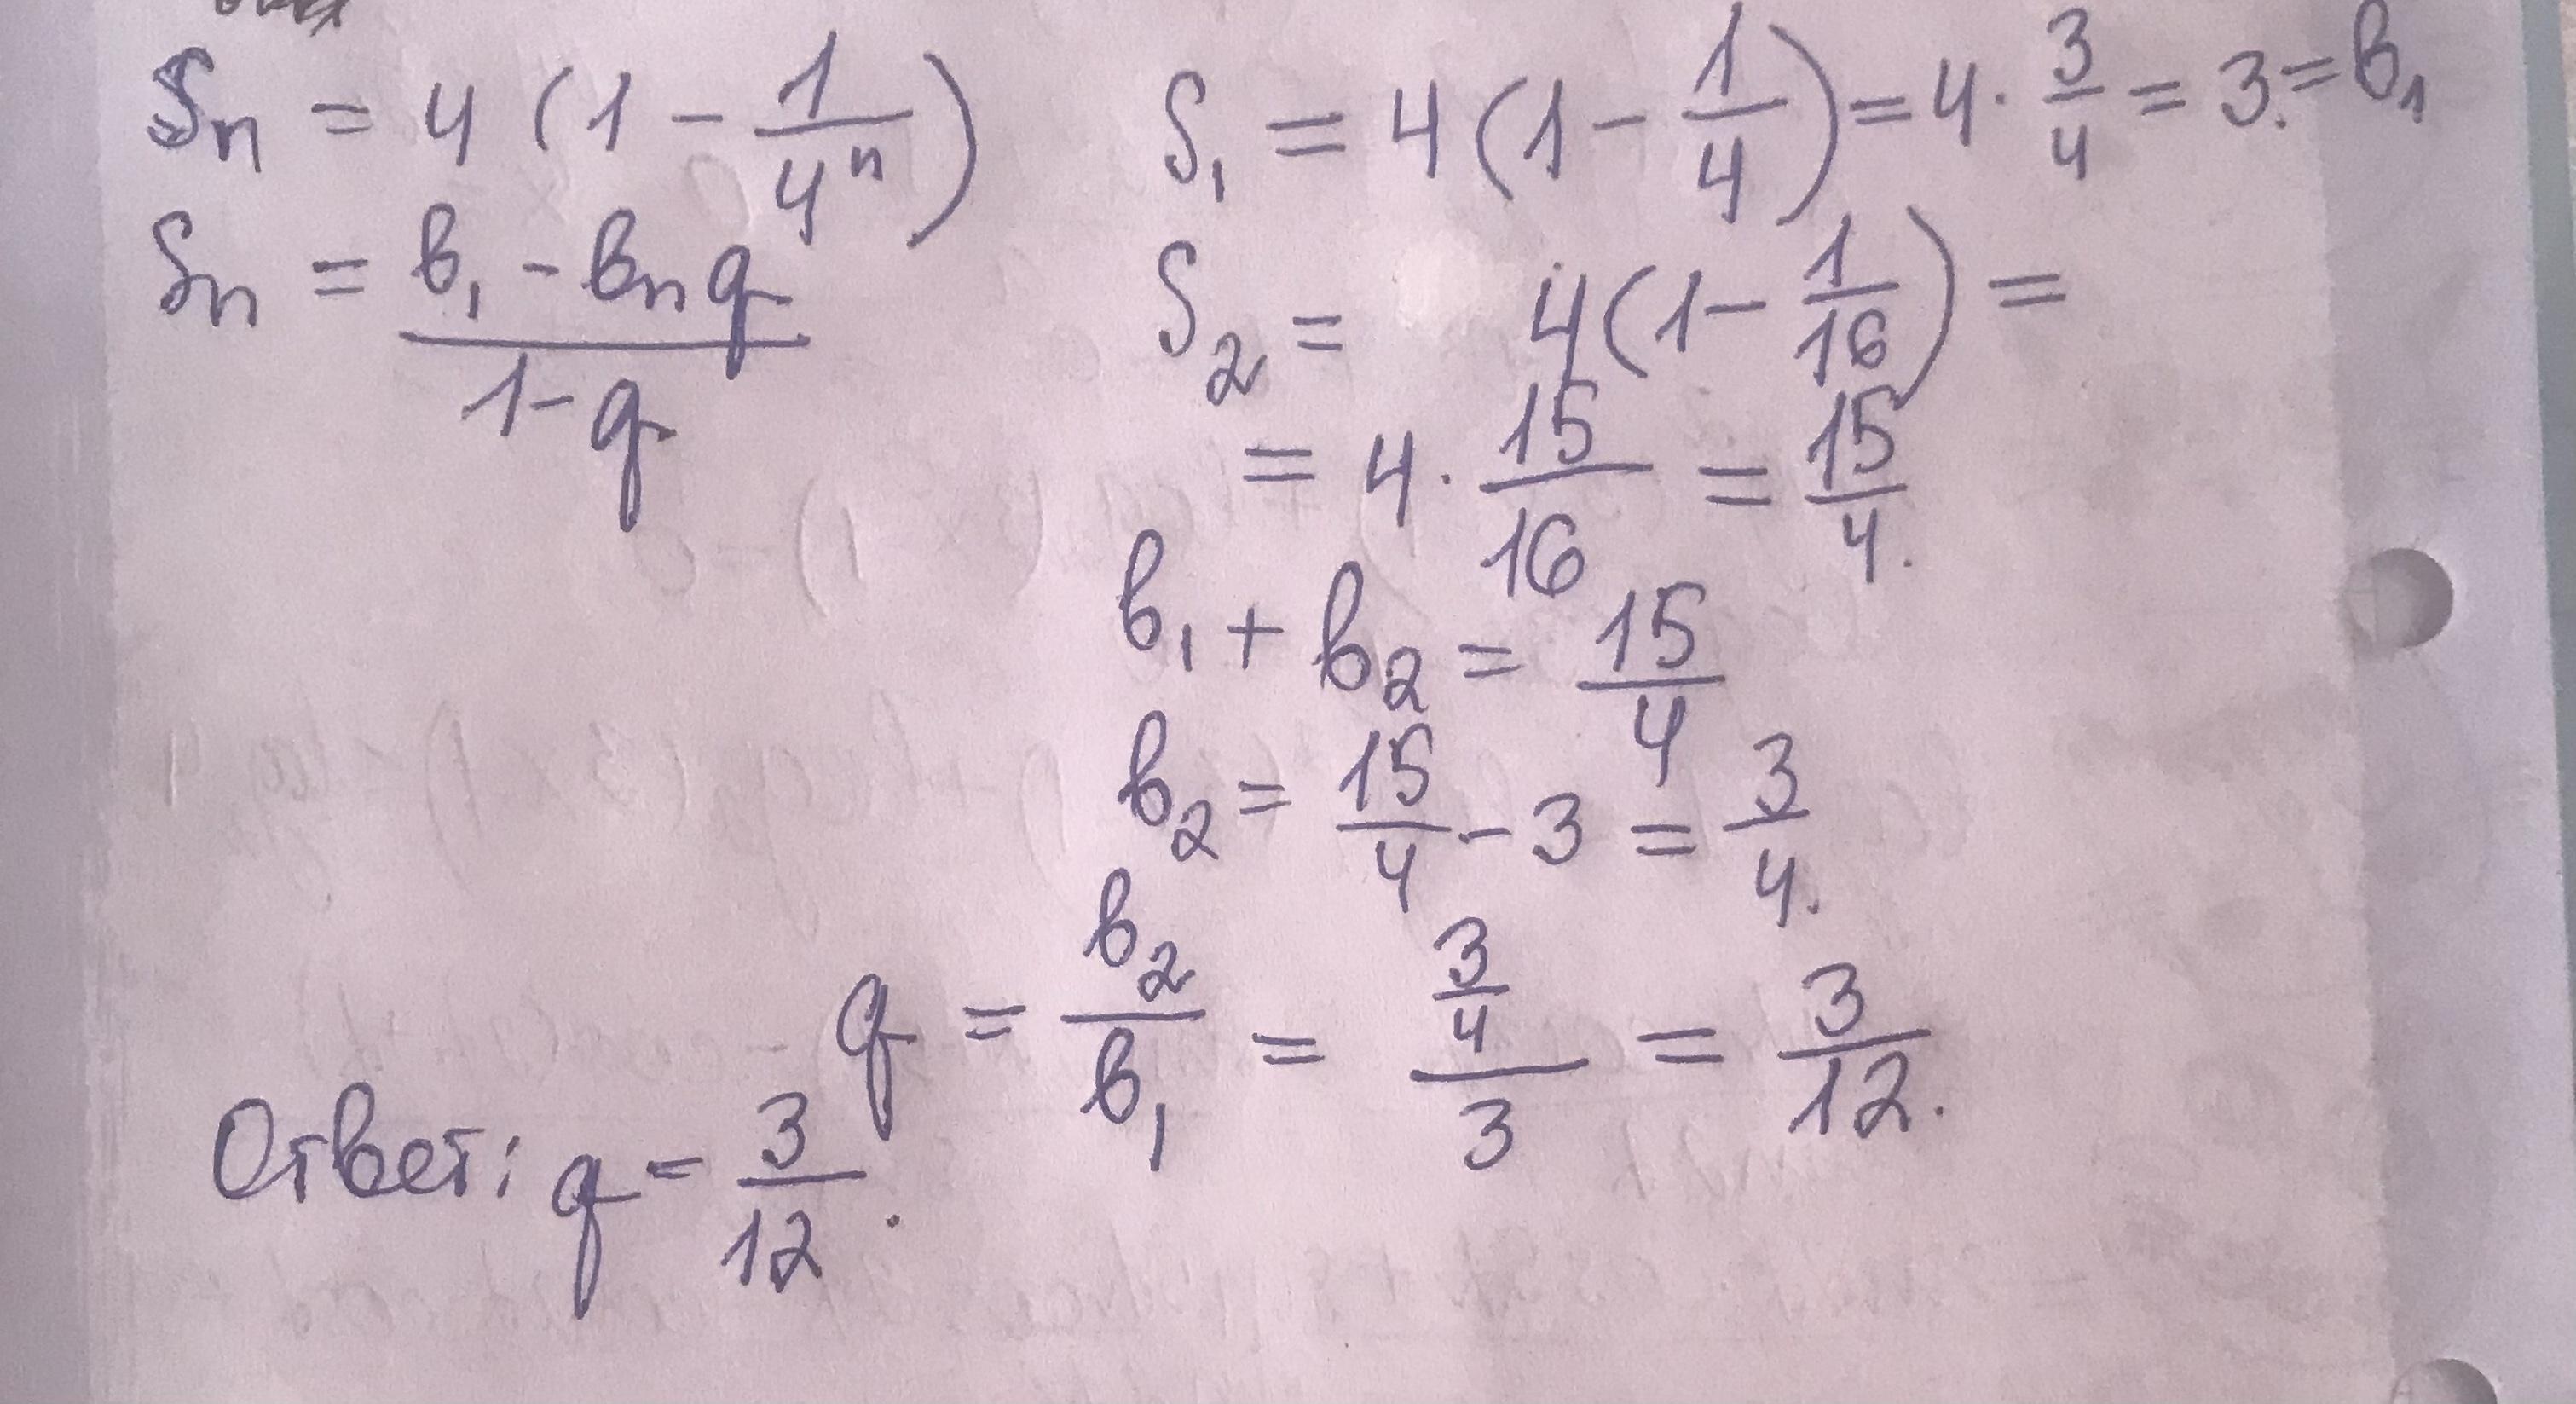 Sₙ = 4 (1 - 1/4ⁿ)
Sₙ = (в₁ - вₙq)/(1-q)
S₁ = 4(1 - 1/4) = 4 · 3/4 = 3. = в₁
S₂ = 4(1 - 1/16) =
= 4 · 15/16 = 15/4.
в₁ + в₂ = 15/4
в₂ = 15/4 - 3 = 3/4.
q = в₂/в₁ = (3/4)/3 = 3/12.
Ответ: q = 3/12.